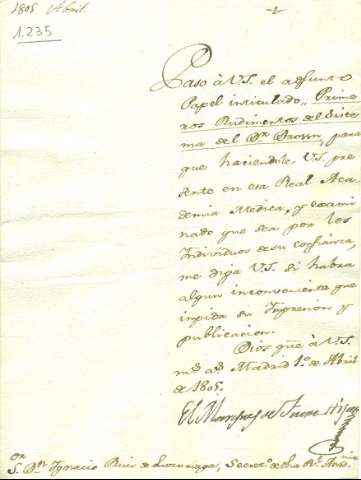 1805 Abril.
1.235
Paso à V.S. el adjunto
Papel intitulado, Prime
ros Rudimentos del Siste
ma del Dr. Brown, para
que haciendole V.S. pre
sente en esa Real Aca
demia Medica, y exami
nado que sea por los
Individuos de su confianza,
me diga V.S. si habra
algun inconveniente que
inpida su Impresion y
publicacion.
Dios gue. à V.S.
ms. as. Madrid 1º. de Abril
de 1805.
El Marques de Fuerte Hijar
S. Dn. Ignacio Ruiz de Luzuriaga, Secreto. de la Rl. Acad.